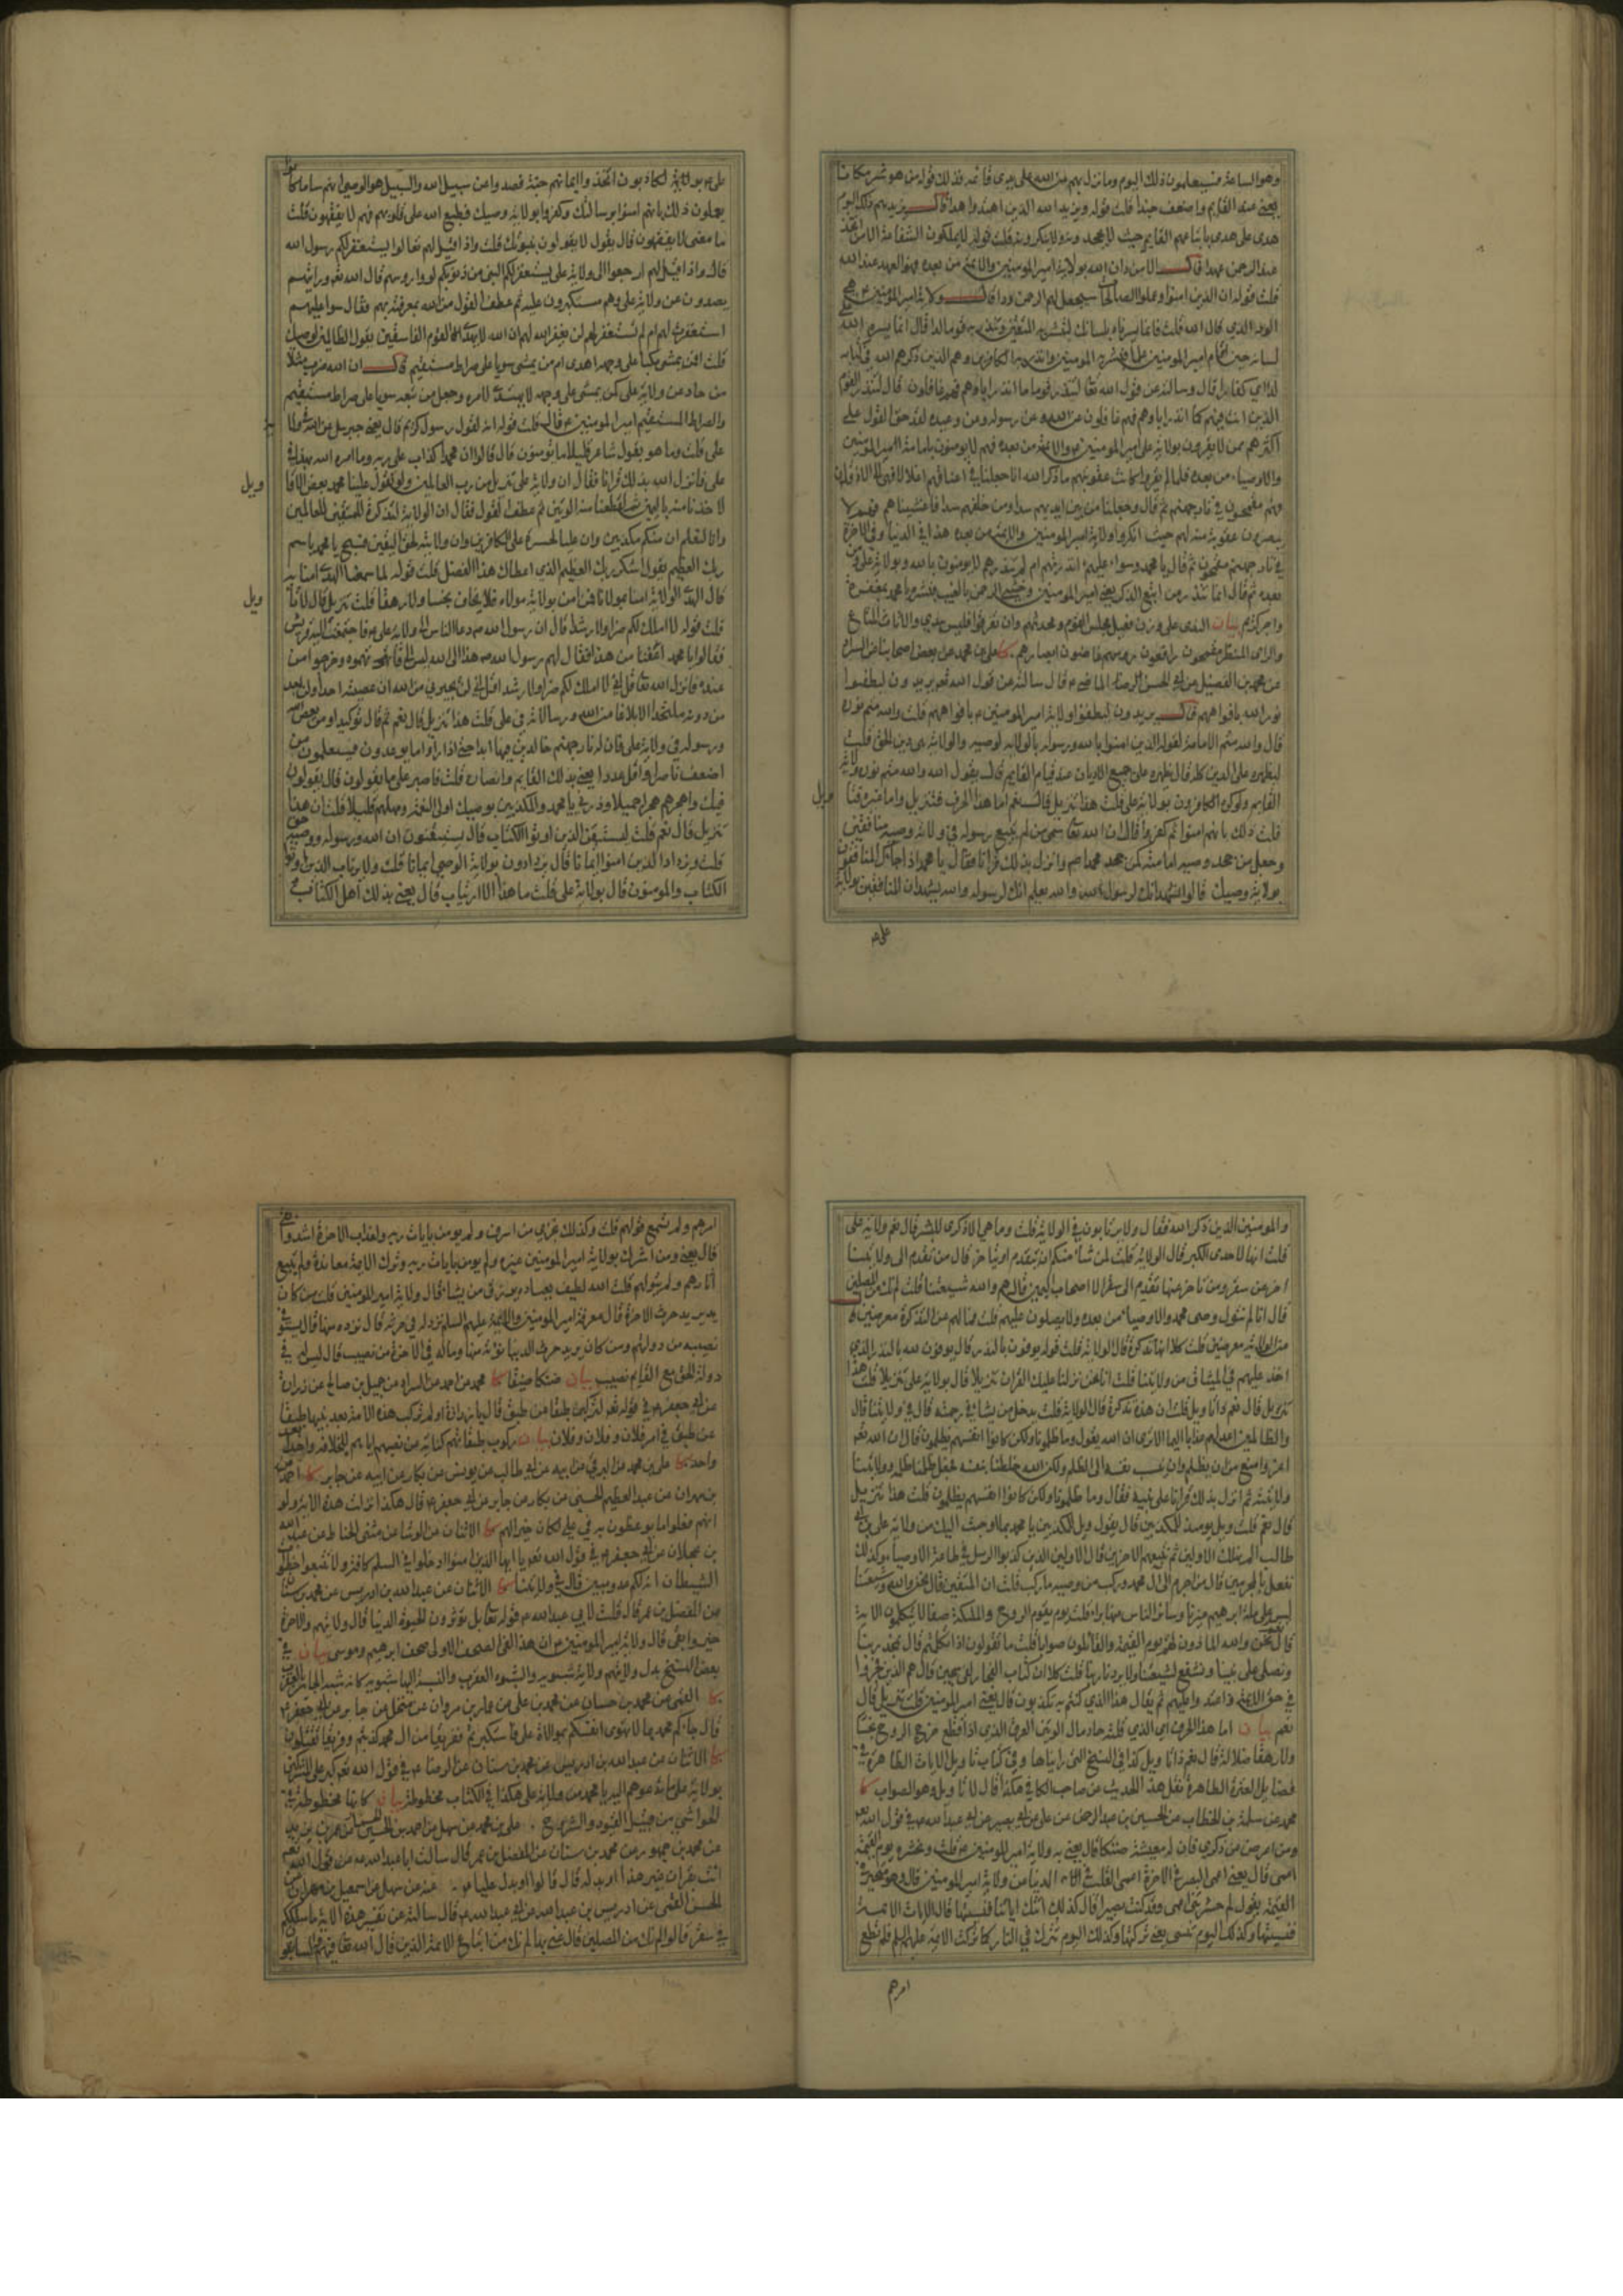 وهو الساعة فسيعلمون ذلك اليوم وما نزل بهم من الله على يدي قائمه فذلك قوله من هو شر مكانا
يعني عند القايم واضعف جندا قلت قوله ويزيد الله الذين اهتدوا هدا قال يزيدهم ذلك اليوم
هدى على هدى باتباعهم القايم حيث لا يجحدونه ولا ينكرونه قلت قوله لا يملكون الشفاعة الا من اتخذ
عند الرحمن عهدا قال الا من دان الله بولاية امير المؤمنين والائمة من بعده فهو العهد عند الله
قلت قوله ان الذين امنوا وعملوا الصالحات سيجعل لهم الرحمن ودا قال ولاية امير المؤمنين ع هي
الود الذي قال الله قلت فانما يسرناه بلسانك لتبشر به المتقين وتنذر به قوما لدا قال انما يسره الله
لسانه حين اقام امير المؤمنين علما فبشر به المومنين وانذر به الكافرين وهم الذين ذكرهم الله في كتابه
لدا اي كفارا قال وسالته عن قول الله تعا لتنذر قوما ما انذر اباؤهم فهم غافلون قال لتنذر القوم
الذين انت فيهم كما انذر اباؤهم فهم غافلون عن الله وعن رسوله وعن وعيده لقد حق القول على
اكثرهم ممن لا يقرون بولاية علي امير المومنين ع والائمة من بعده فهم لا يومنون بامامة امير المومنين
والاوصياء من بعده فلما لم يقروا كانت عقوبتهم ما ذكر الله انا جعلنا في اعناقهم اغلالا فهي الى الاذقان
فهم مقمحون في نار جهنم ثم قال وجعلنا من بين ايديهم سدا ومن خلفهم سدا فاغشيناهم فهم لا
يبصرون عقوبة منه لهم حيث انكروا ولاية امير المومنين والائمة من بعده هذا في الدنيا وفي الاخرة
في نار جهنم مقمحون ثم قال يا محمد وسواء عليهم انذرتهم ام لم تنذرهم لا يومنون بالله وبولاية علي ومن
بعده ثم قال انما تنذر من اتبع الذكر يعني امير المومنين وخشي الرحمن بالغيب فبشره يا محمد بمغفرة
واجر كريم بيان الندي على وزن فعيل مجلس القوم ومحدثهم وان تفرقوا فليس بندي والاثاث المتاع
والرئي المنظر مقمحون رافعون روسهم غاضون ابصارهم كا علي بن محمد عن بعض اصحابنا عن السراد
عن محمد بن الفضيل عن ابي الحسن الماضي ع قال سالته عن قول الله تعا يريدون ليطفئوا
نور الله بافواههم قال يريدون ليطفئوا ولاية امير المومنين ع بافواههم قلت والله متم نوره
قال والله متم الامامة لقوله الذين امنوا بالله ورسوله بالولاية لوصيه والولاية هي دين الحق قلت
ليظهره على الدين كله قال يظهره على جميع الاديان عند قيام القايم قال يقول الله والله متم نوره ولاية
القايم ولو كره الكافرون بولاية علي قلت هذا تنزيل قال نعم اما هذا الحرف فتنزيل واما غيره فتا
ويل
قلت ذلك بانهم امنوا ثم كفروا قال ان الله تعا سمى من لم يتبع رسوله في ولاية وصيه منافقين
وجعل من جحد وصيه امامته كمن جحد محمدا ص وانزل بذلك قرانا فقال يا محمد اذا جاءك المنافقون
بولاية وصيك قالوا نشهد انك لرسول الله والله يعلم انك لرسوله والله يشهد ان المنافقين بولاية
علي ع
علي ع بولاية لكاذبون اتخذوا ايمانهم جنة فصدوا عن سبيل الله والسبيل هو الوصي انهم ساء ما كانوا
يعملون ذلك بانهم امنوا برسالتك وكفروا بولاية وصيك فطبع الله على قلوبهم فهم لا يفقهون قلت
ما معنى لا يفقهون قال يقول لا يعقلون بنبوتك قلت واذا قيل لهم تعالوا يستغفر لكم رسول الله
قال واذا قيل لهم ارجعوا الى ولاية علي يستغفر لكم النبي من ذنوبكم لووا روسهم قال الله تعا ورايتهم
يصدون عن ولاية علي وهم مستكبرون عليه ثم عطف القول من الله بمعرفته بهم فقال سواء عليهم
استغفرت لهم ام لم تستغفر لهم لن يغفر الله لهم ان الله لا يهدي القوم الفاسقين يقول الظالمين لوصيك
قلت افمن يمشي مكبا على وجهه اهدى ام من يمشي سويا على صراط مستقيم قال ان الله ضرب مثلا
من حاد عن ولاية علي كمن يمشي على وجهه لا يهتدي لامره وجعل من تبعه سويا على صراط مستقيم
والصراط المستقيم امير المومنين ع قال قلت قوله انه لقول رسول كريم قال يعني جبريل عن الله في ولاية
علي قلت وما هو بقول شاعر قليلا ما تومنون قال قالوا ان محمدا كذاب على ربه وما امره الله بهذا في
علي فانزل الله بذلك قرانا فقال ان ولاية علي تنزيل من رب العالمين ولو تقول علينا محمد بعض الاقا
ويل
لاخذنا منه باليمين ثم لقطعنا منه الوتين ثم عطف القول فقال ان الولاية لتذكرة للمتقين للعالمين
وانا لنعلم ان منكم مكذبين وان عليا لحسرة على الكافرين وان ولايته لحق اليقين فسبح يا محمد باسم
ربك العظيم يقول اشكر ربك العظيم الذي اعطاك هذا الفضل قلت قوله لما سمعنا الهدى امنا به
قال الهدى الولاية امنا بمولانا فمن امن بولاية مولاه فلا يخاف بخسا ولا رهقا قلت تنزيل قال لا تا
ويل
قلت قوله لا املك لكم ضرا ولا رشدا قال ان رسول الله ص دعا الناس الى ولاية علي ع فاجتمعت اليه قريش
فقالوا يا محمد اعفنا من هذا فقال لهم رسول الله ص هذا الى الله ليس الي فاتهموه وخرجوا من
عنده فانزل الله تعا قل اني لا املك لكم ضرا ولا رشدا قل اني لن يجيرني من الله ان عصيته احد ولن اجد
من دونه ملتحدا الا بلاغا من الله ورسالاته في علي قلت هذا تنزيل قال نعم ثم قال توكيدا ومن يعص الله
ورسوله في ولاية علي فان له نار جهنم خالدين فيها ابدا حتى اذا راوا ما يوعدون فسيعلمون من
اضعف ناصرا واقل عددا يعني بذلك القايم وانصاره قلت فاصبر على ما يقولون قال يقولون
فيك واهجرهم هجرا جميلا وذرني يا محمد والمكذبين بوصيك اولي النعمة ومهلهم قليلا قلت ان هذا
تنزيل قال نعم قلت ليستيقن الذين اوتوا الكتاب قال يستيقنون ان الله ورسوله ووصيه حق
قلت ويزداد الذين امنوا ايمانا قال يزدادون بولاية الوصي ايمانا قلت ولا يرتاب الذين اوتوا
الكتاب والمومنون قال بولاية علي قلت ما هذا الارتياب قال يعني بذلك اهل الكتاب
والمومنين الذين ذكر الله فقال ولا يرتابون في الولاية قلت وما هي الا ذكرى للبشر قال نعم ولاية علي
قلت انها لاحدى الكبر قال الولاية قلت لمن شاء منكم ان يتقدم او يتاخر قال من تقدم الى ولايتنا
اخر عن سقر ومن تاخر عنها تقدم الى سقر الا اصحاب اليمين قال هم والله شيعتنا قلت لم نك من المصلين
قال انا لم نتول وصي محمد والاوصياء من بعده ولا يصلون عليهم قلت فما لهم عن التذكرة معرضين قال
عن الولاية معرضين قلت كلا انها تذكرة قال الولاية قلت قوله يوفون بالنذر قال يوفون لله بالنذر الذي
اخذ عليهم في الميثاق من ولايتنا قلت انا نحن نزلنا عليك القران تنزيلا قال بولاية علي تنزيلا قلت هذا
تنزيل قال نعم ذا تاويل قلت ان هذه تذكرة قال الولاية قلت يدخل من يشاء في رحمته قال في ولايتنا قال
والظالمين اعد لهم عذابا اليما الا ترى ان الله يقول وما ظلمونا ولكن كانوا انفسهم يظلمون قال ان الله تعا
اعز وامنع من ان يظلم وان ينسب نفسه الى الظلم ولكن الله خلطنا بنفسه فجعل ظلمنا ظلمه وولايتنا
ولايته ثم انزل بذلك قرانا على نبيه فقال وما ظلمونا ولكن كانوا انفسهم يظلمون قلت هذا تنزيل
قال نعم قلت ويل يومئذ للمكذبين قال يقول ويل للمكذبين يا محمد بما اوحيت اليك من ولاية علي بن ابي
طالب الم نهلك الاولين ثم نتبعهم الاخرين قال الاولين الذين كذبوا الرسل في طاعة الاوصياء كذلك
نفعل بالمجرمين قال من اجرم الى ال محمد وركب من وصيه ما ركب قلت ان المتقين قال نحن والله وشيعتنا
ليس على ملة ابراهيم غيرنا وسائر الناس منها براء قلت يوم يقوم الروح والملئكة صفا لا يتكلمون الاية
قال نحن والله الماذون لهم يوم القيمة والقائلون صوابا قلت ما تقولون اذا تكلمتم قال نحمد ربنا
ونصلي على نبينا ونشفع لشيعتنا ولا يردنا ربنا قلت كلا ان كتاب الفجار لفي سجين قال هم الذين فجروا
في حق الائمة واعتدوا عليهم ثم يقال هذا الذي كنتم به تكذبون قال يعني امير المومنين قلت تنزيل قال
نعم بيان اما هذا الحرف اي الذي قلته حاد مال الوتين العرق الذي اذا قطع خرج الروح بخسا
ولا رهقا ضلالة قال نعم ذا تاويل كذا في النسخ التي رايناها وفي كتاب تاويل الايات الظاهرة في
فضايل العترة الطاهرة نقل هذا الحديث من صاحب الكافي هكذا قال لا تاويل وهو الصواب كا
محمد عن سلمة بن الخطاب عن الحسين بن عبد الرحمن عن علي عن ابي بصير عن ابي عبد الله ع في قول الله تعا
ومن اعرض عن ذكري فان له معيشة ضنكا قال يعني به ولاية امير المومنين ع قلت ونحشره يوم القيمة
اعمى قال يعني اعمى البصر في الاخرة اعمى القلب في الدنيا عن ولاية امير المومنين قال وهو متحير في
القيمة يقول لم حشرتني اعمى وقد كنت بصيرا قال كذلك اتتك اياتنا فنسيتها قال الايات الائمة
فنسيتها وكذلك اليوم تنسى يعني تركتها وكذلك اليوم تترك في النار كما تركت الائمة عليهم السلم فلم تطع
امرهم
امرهم ولم تسمع قولهم قلت وكذلك نجزي من اسرف ولم يومن بايات ربه ولعذاب الاخرة اشد وابقى
قال يعني ومن اشرك بولاية امير المومنين غيره ولم يومن بايات ربه وترك الائمة معاندة ولم يتبع
اثارهم ولم يتولهم قلت الله لطيف بعباده يرزق من يشاء قال ولاية امير المومنين قلت من كان
يريد حرث الاخرة قال معرفة امير المومنين والائمة عليهم السلم نزد له في حرثه قال نزيده منها قال يستوفي
نصيبه من دولتهم ومن كان يريد حرث الدنيا نؤته منها وماله في الاخرة من نصيب قال ليس له في
دولة الحق مع القايم نصيب بيان ضنكا ضيقا كا محمد عن احمد عن السراد عن جميل بن صالح عن زرارة
عن ابي جعفر ع في قوله تعا لتركبن طبقا عن طبق قال يا زرارة او لم تركب هذه الامة بعد نبيها طبقا
عن طبق في امر فلان وفلان وفلان بيان ركوب طبقاتهم كناية عن نصبهم اياهم للخلافة واحدا بعد
واحد كا علي بن محمد عن البرقي عن ابيه عن ابي طالب عن يونس بن بكار عن ابيه عن جابر كا احمد
بن مهران عن عبد العظيم الحسني عن بكار عن جابر عن ابي جعفر ع قال هكذا نزلت هذه الاية ولو
انهم فعلوا ما يوعظون به في علي لكان خيرا لهم كا الاثنان عن الوشا عن مثنى الحناط عن عبد الله
بن عجلان عن ابي جعفر ع في قول الله تعا يا ايها الذين امنوا ادخلوا في السلم كافة ولا تتبعوا خطوات
الشيطان انه لكم عدو مبين قال في ولايتنا كا الاثنان عن عبد الله بن ادريس عن محمد بن سنان
عن المفضل بن عمر قال قلت لابي عبد الله ع قوله تعا بل تؤثرون الحيوة الدنيا قال ولايتهم والاخرة
خير وابقى قال ولاية امير المومنين ع ان هذا لفي الصحف الاولى صحف ابراهيم وموسى بيان في
بعض النسخ بدل ولايتهم ولاية شبوية والشبوة العقرب والنسبة اليها شبوية كانه شبه الجائر بالعقرب
كا القمي عن محمد بن حسان عن محمد بن علي عن عمار بن مروان عن منخل عن جابر عن ابي جعفر ع
قال جاءكم محمد بما لا تهوى انفسكم بموالاة علي فاستكبرتم ففريقا من ال محمد كذبتم وفريقا تقتلون
كا الاثنان عن عبد الله بن ادريس عن محمد بن سنان عن الرضا ع في قول الله تعا كبر على المشركين
بولاية علي ما تدعوهم اليه يا محمد من ولاية علي هكذا في الكتاب مخطوطة بيان كانها مخطوطة في
الحواشي من قبيل القيود والشروح علي بن محمد عن سهل عن احمد بن الحسين عن عمر بن يزيد
عن محمد بن جمهور عن محمد بن سنان عن المفضل بن عمر قال سالت ابا عبد الله ع عن قول الله تعا
ائت بقران غير هذا او بدله قال قالوا او بدل عليا ع عنه عن سهل عن اسمعيل بن مهران عن
الحسن القمي عن ادريس بن عبد الله عن ابي عبد الله ع قال سالته عن تفسير هذه الاية ما سلككم
في سقر قالوا لم نك من المصلين قال عنى بها لم نك من اتباع الائمة الذين قال الله تعا فيهم والسابقون